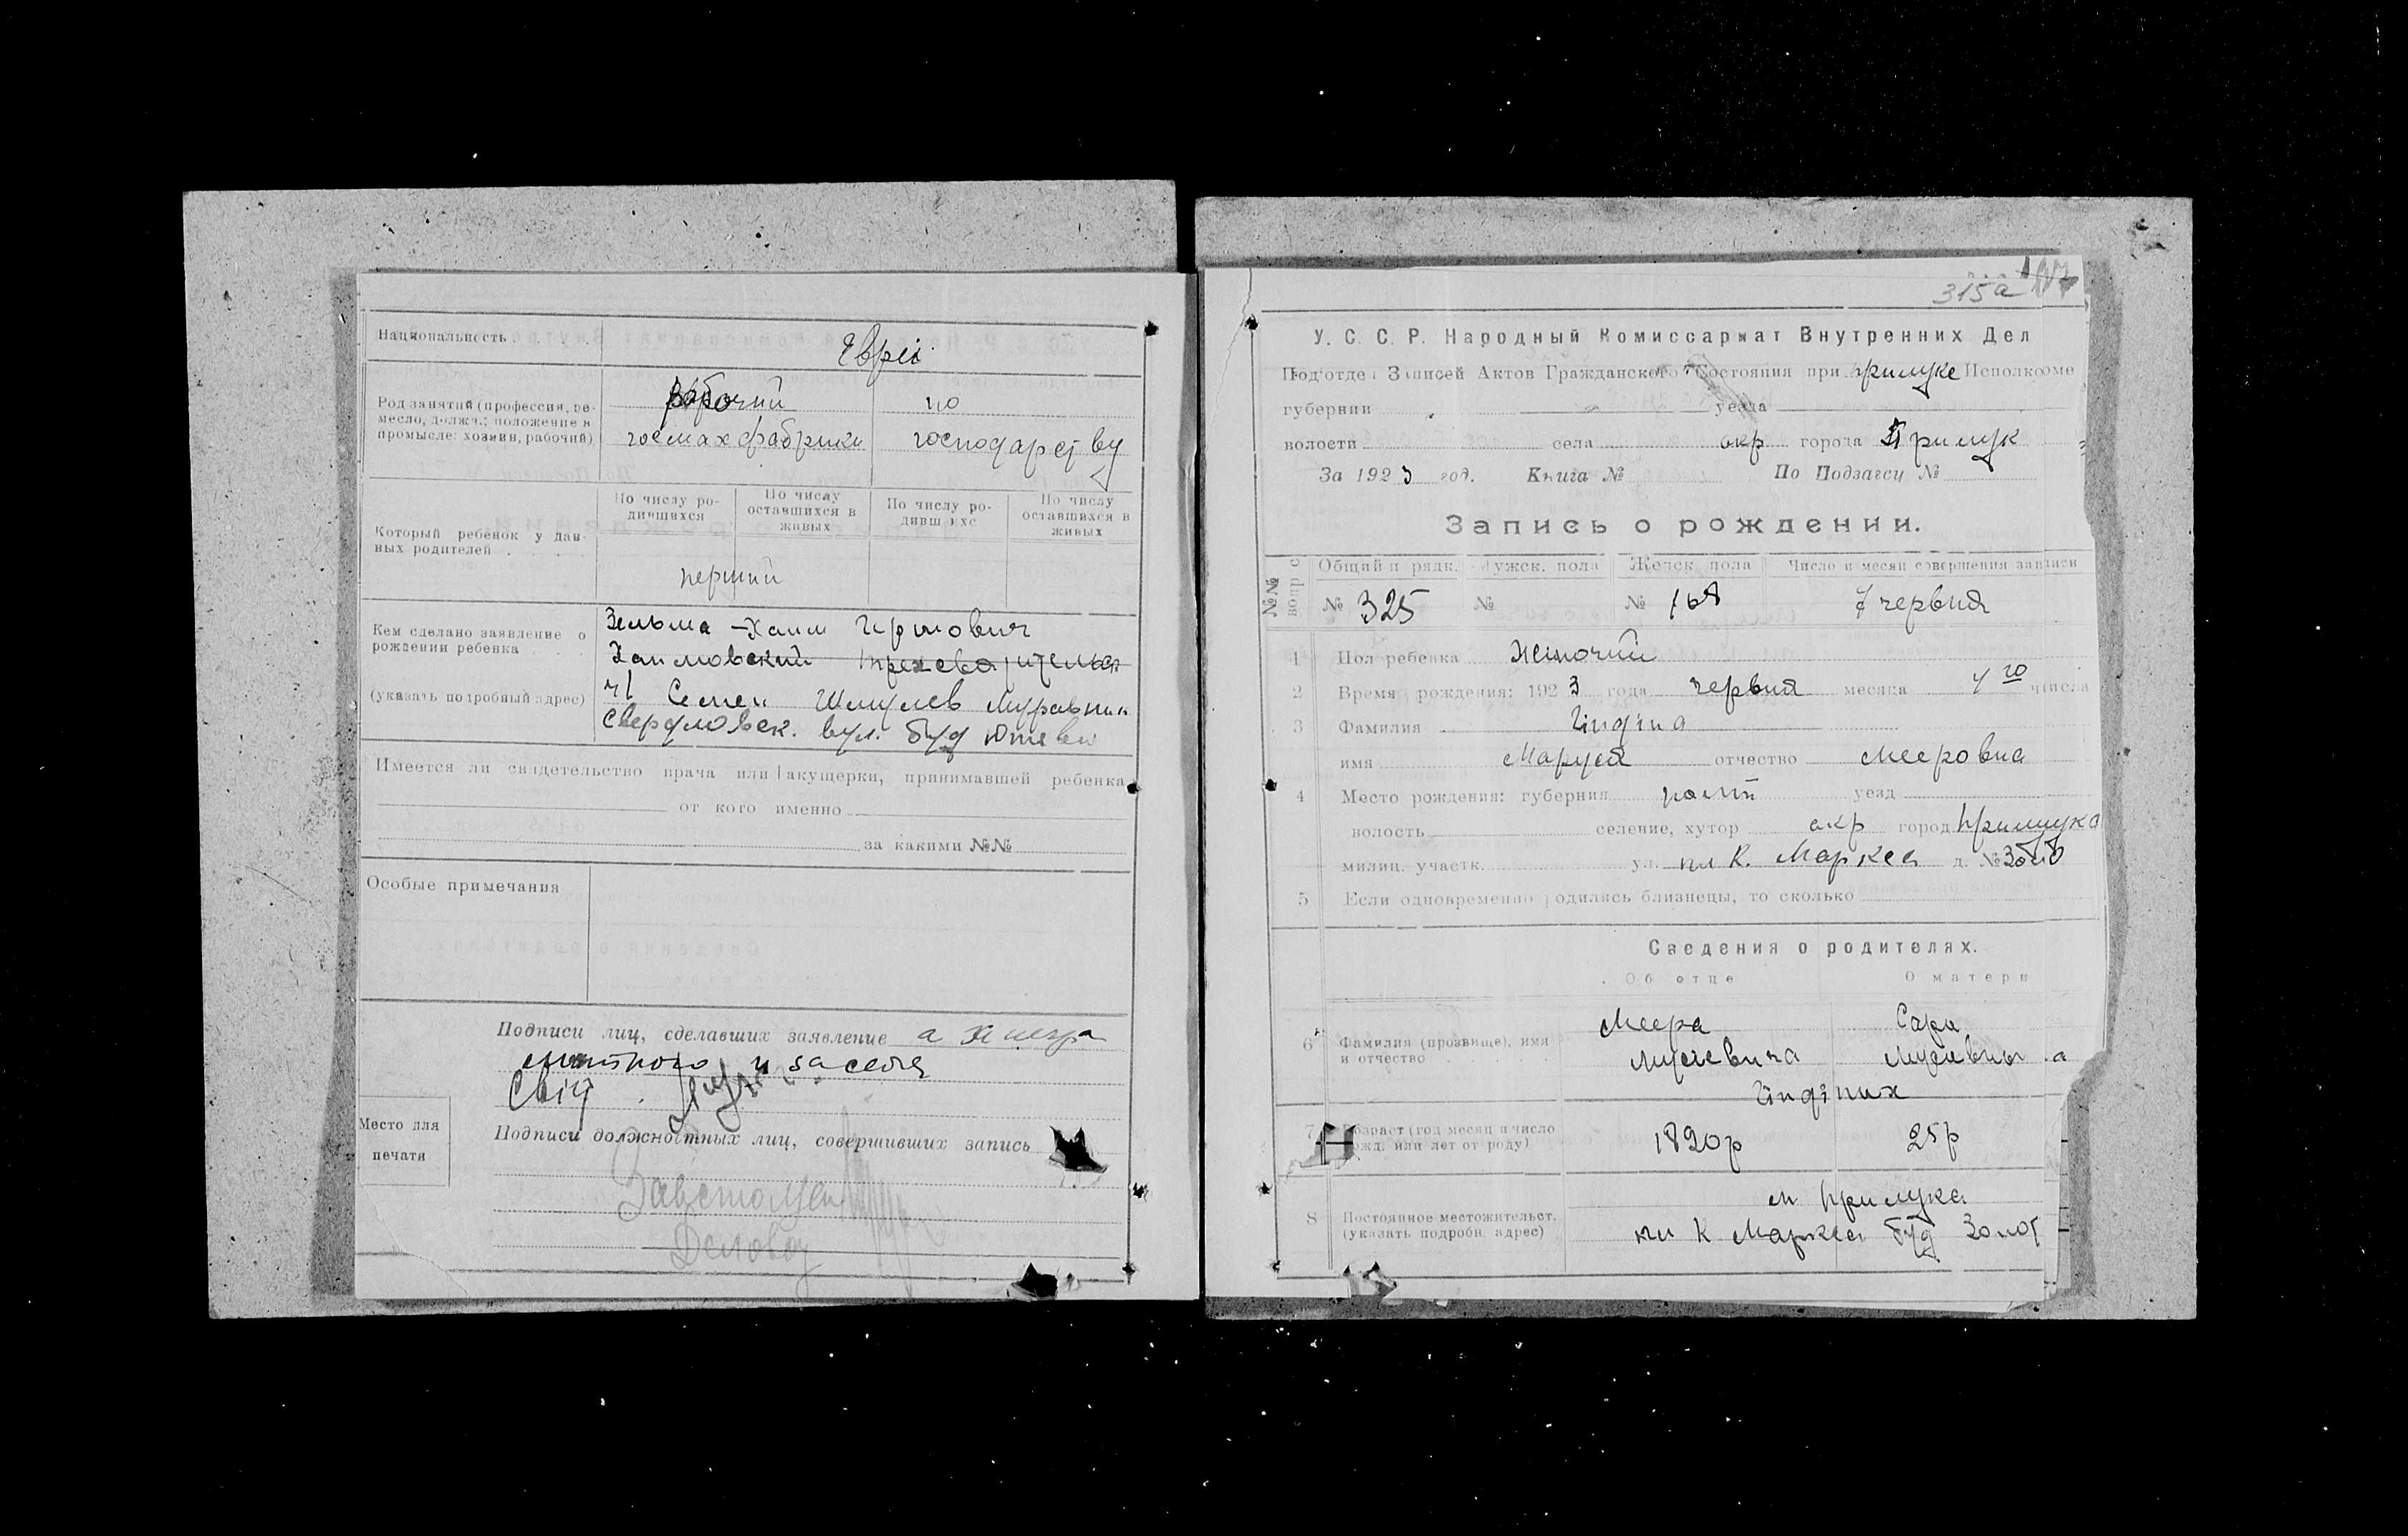 Национальность
Євреї
Род занятий (профессия, ре-
месло, должн.; положение в
промысле: хозяин, рабочий)
рабочий
по
госмахфабрики
господарству
Который ребенок у дан-
ных родителей
По числу ро-
дившихся
По числу
оставшихся в
живых
По числу ро-
дивш хс
По числу
оставшихся в
живых
перший
Кем сделано заявление о
рождении ребенка
(указать подробный адрес)
Зельма-Хаим
Хаимовский
Семен Шмулев Муравник
Свердловск. вул. буд
Имеется ли свидетельство врача или акушерки, принимавшей ребенка
от кого именно
за какими №№
Особые примечания
Подписи лиц, сделавших заявление а за
и за себя
Свід.
Место для
печати
Подписи должностных лиц, совершивших запись
Завстолом
Деловод
315а
У. С. С. Р. Народный Комиссариат Внутренних Дел
Подотдел Записей Актов Гражданского Состояния при Прилуке Исполкоме
губернии уезда
волости села окр города Прилук
За 1923 год. Книга № По Подзагсу №
Запись о рождении.
№№ вопрос
Общий п рядк. Мужск. пола Женск. пола Число и месяц совершения записи
№ 325 № № 168 7 червня
1 Пол ребенка Жіночий
2 Время рождения: 1923 года червня месяца 4 го числа
3 Фамилия Гіндіна
имя Маруся отчество Мееровна
4 Место рождения: губерния полт уезд
волость селение, хутор окр город Прилука
милиц. участк. ул. пл К. Маркса д. №
5 Если одновременно родились близнецы, то сколько
Сведения о родителях.
Об отце О матери
6 Фамилия (прозвище), имя
и отчество
Меера
Сара
Мусиевича
Мусиевны
Гіндіних
7 Возраст (год месяц и число
рожд. или лет от роду)
1890р
25р
8 Постоянное местожительст.
(указать подробн. адрес)
м Прилука
пл К Маркса буд